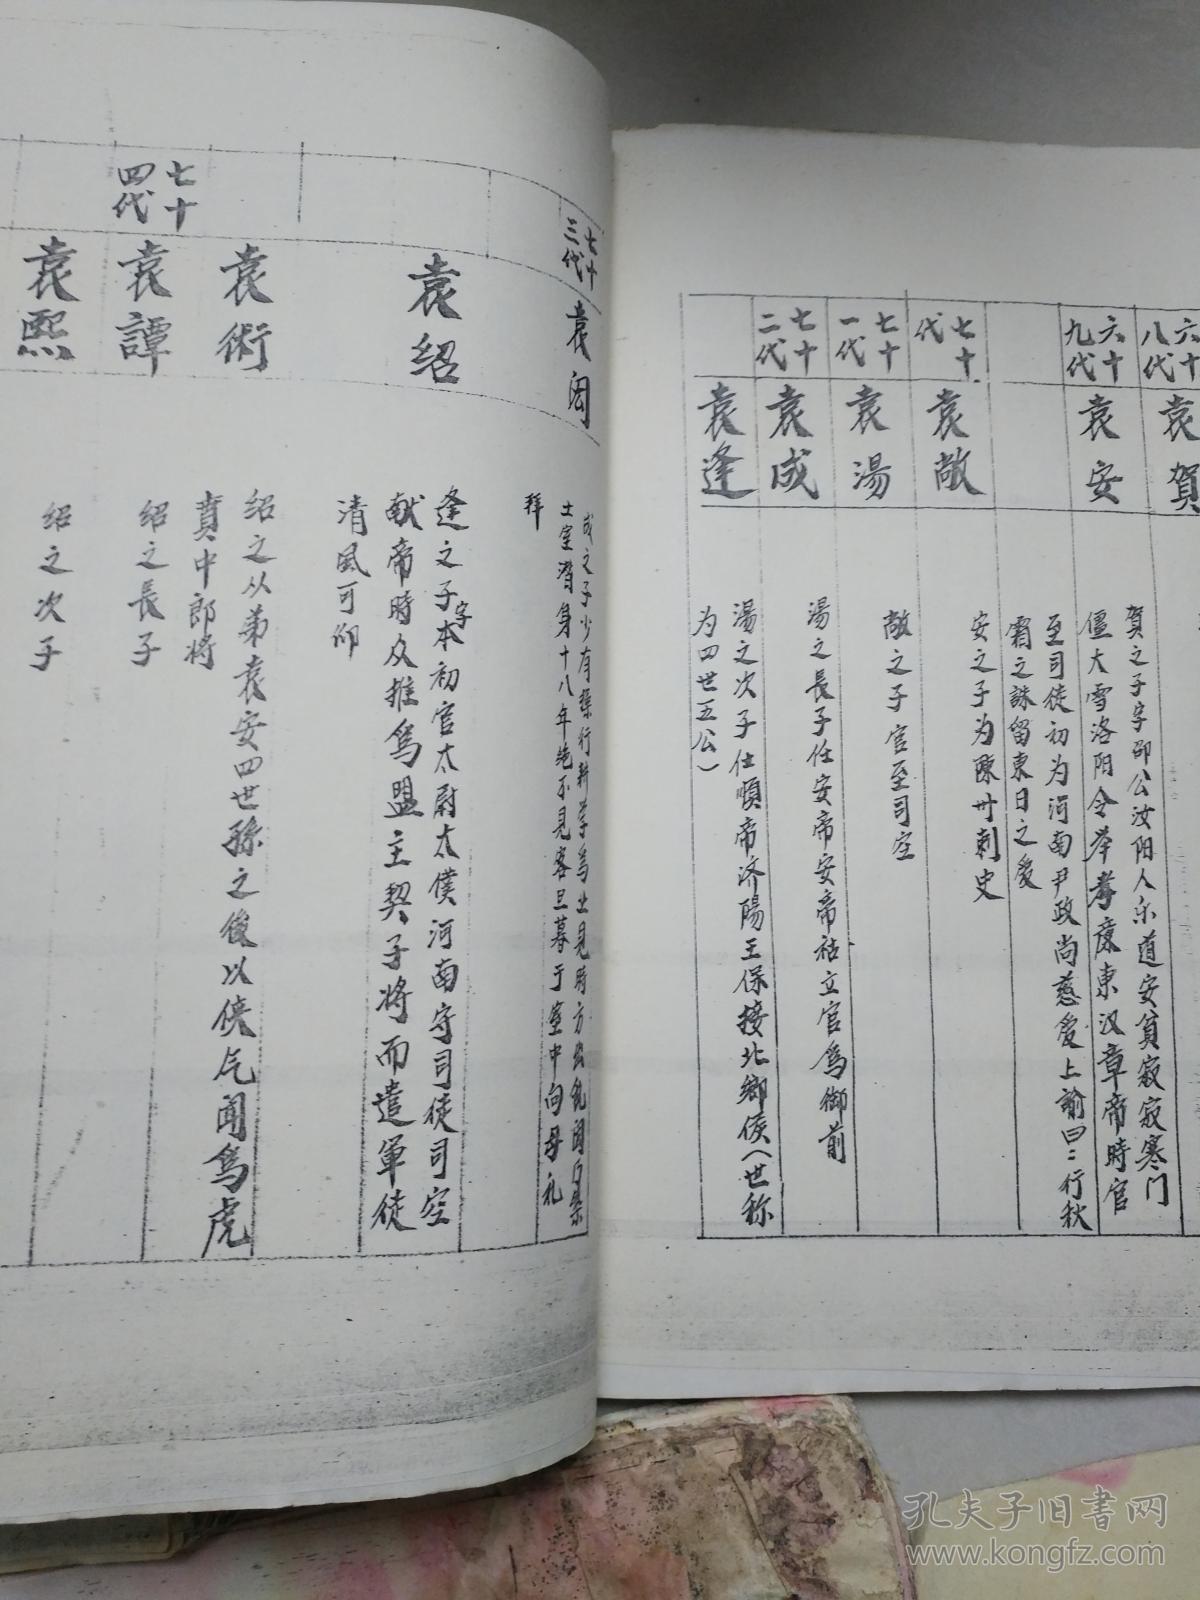 六十八代
袁賀
六十九代
袁安
賀之子字邵公汝阳人乐道安貧寂寂寒门
僵大雪洛阳令举孝廉東汉章帝時官
至司徒初为河南尹政尚慈爱上諭曰:行秋
霜之誅留東日之爱
安之子为陳州刺史
七十代
袁敞
敞之子官至司空
七十一代
袁湯
湯之長子任安帝安帝祜立官為御前
七十二代
袁成
湯之次子仕順帝济陽王保接北鄉侯（世称
袁逢
为四世五公）
七十三代
袁閎
成之子少有操行耕学為业見時方
士室潜身十八年绝不見客旦暮于室中向母礼
拜
袁绍
逢之子字本初官太尉太僕河南守司徒司空
献帝時众推為盟主契子将而遣軍徒
清風可仰
袁術
绍之从弟袁安四世孫之後以侠气闻為虎
賁中郎将
七十四代
袁譚
绍之長子
袁熙
绍之次子
孔夫子旧书网
www.kongfz.com